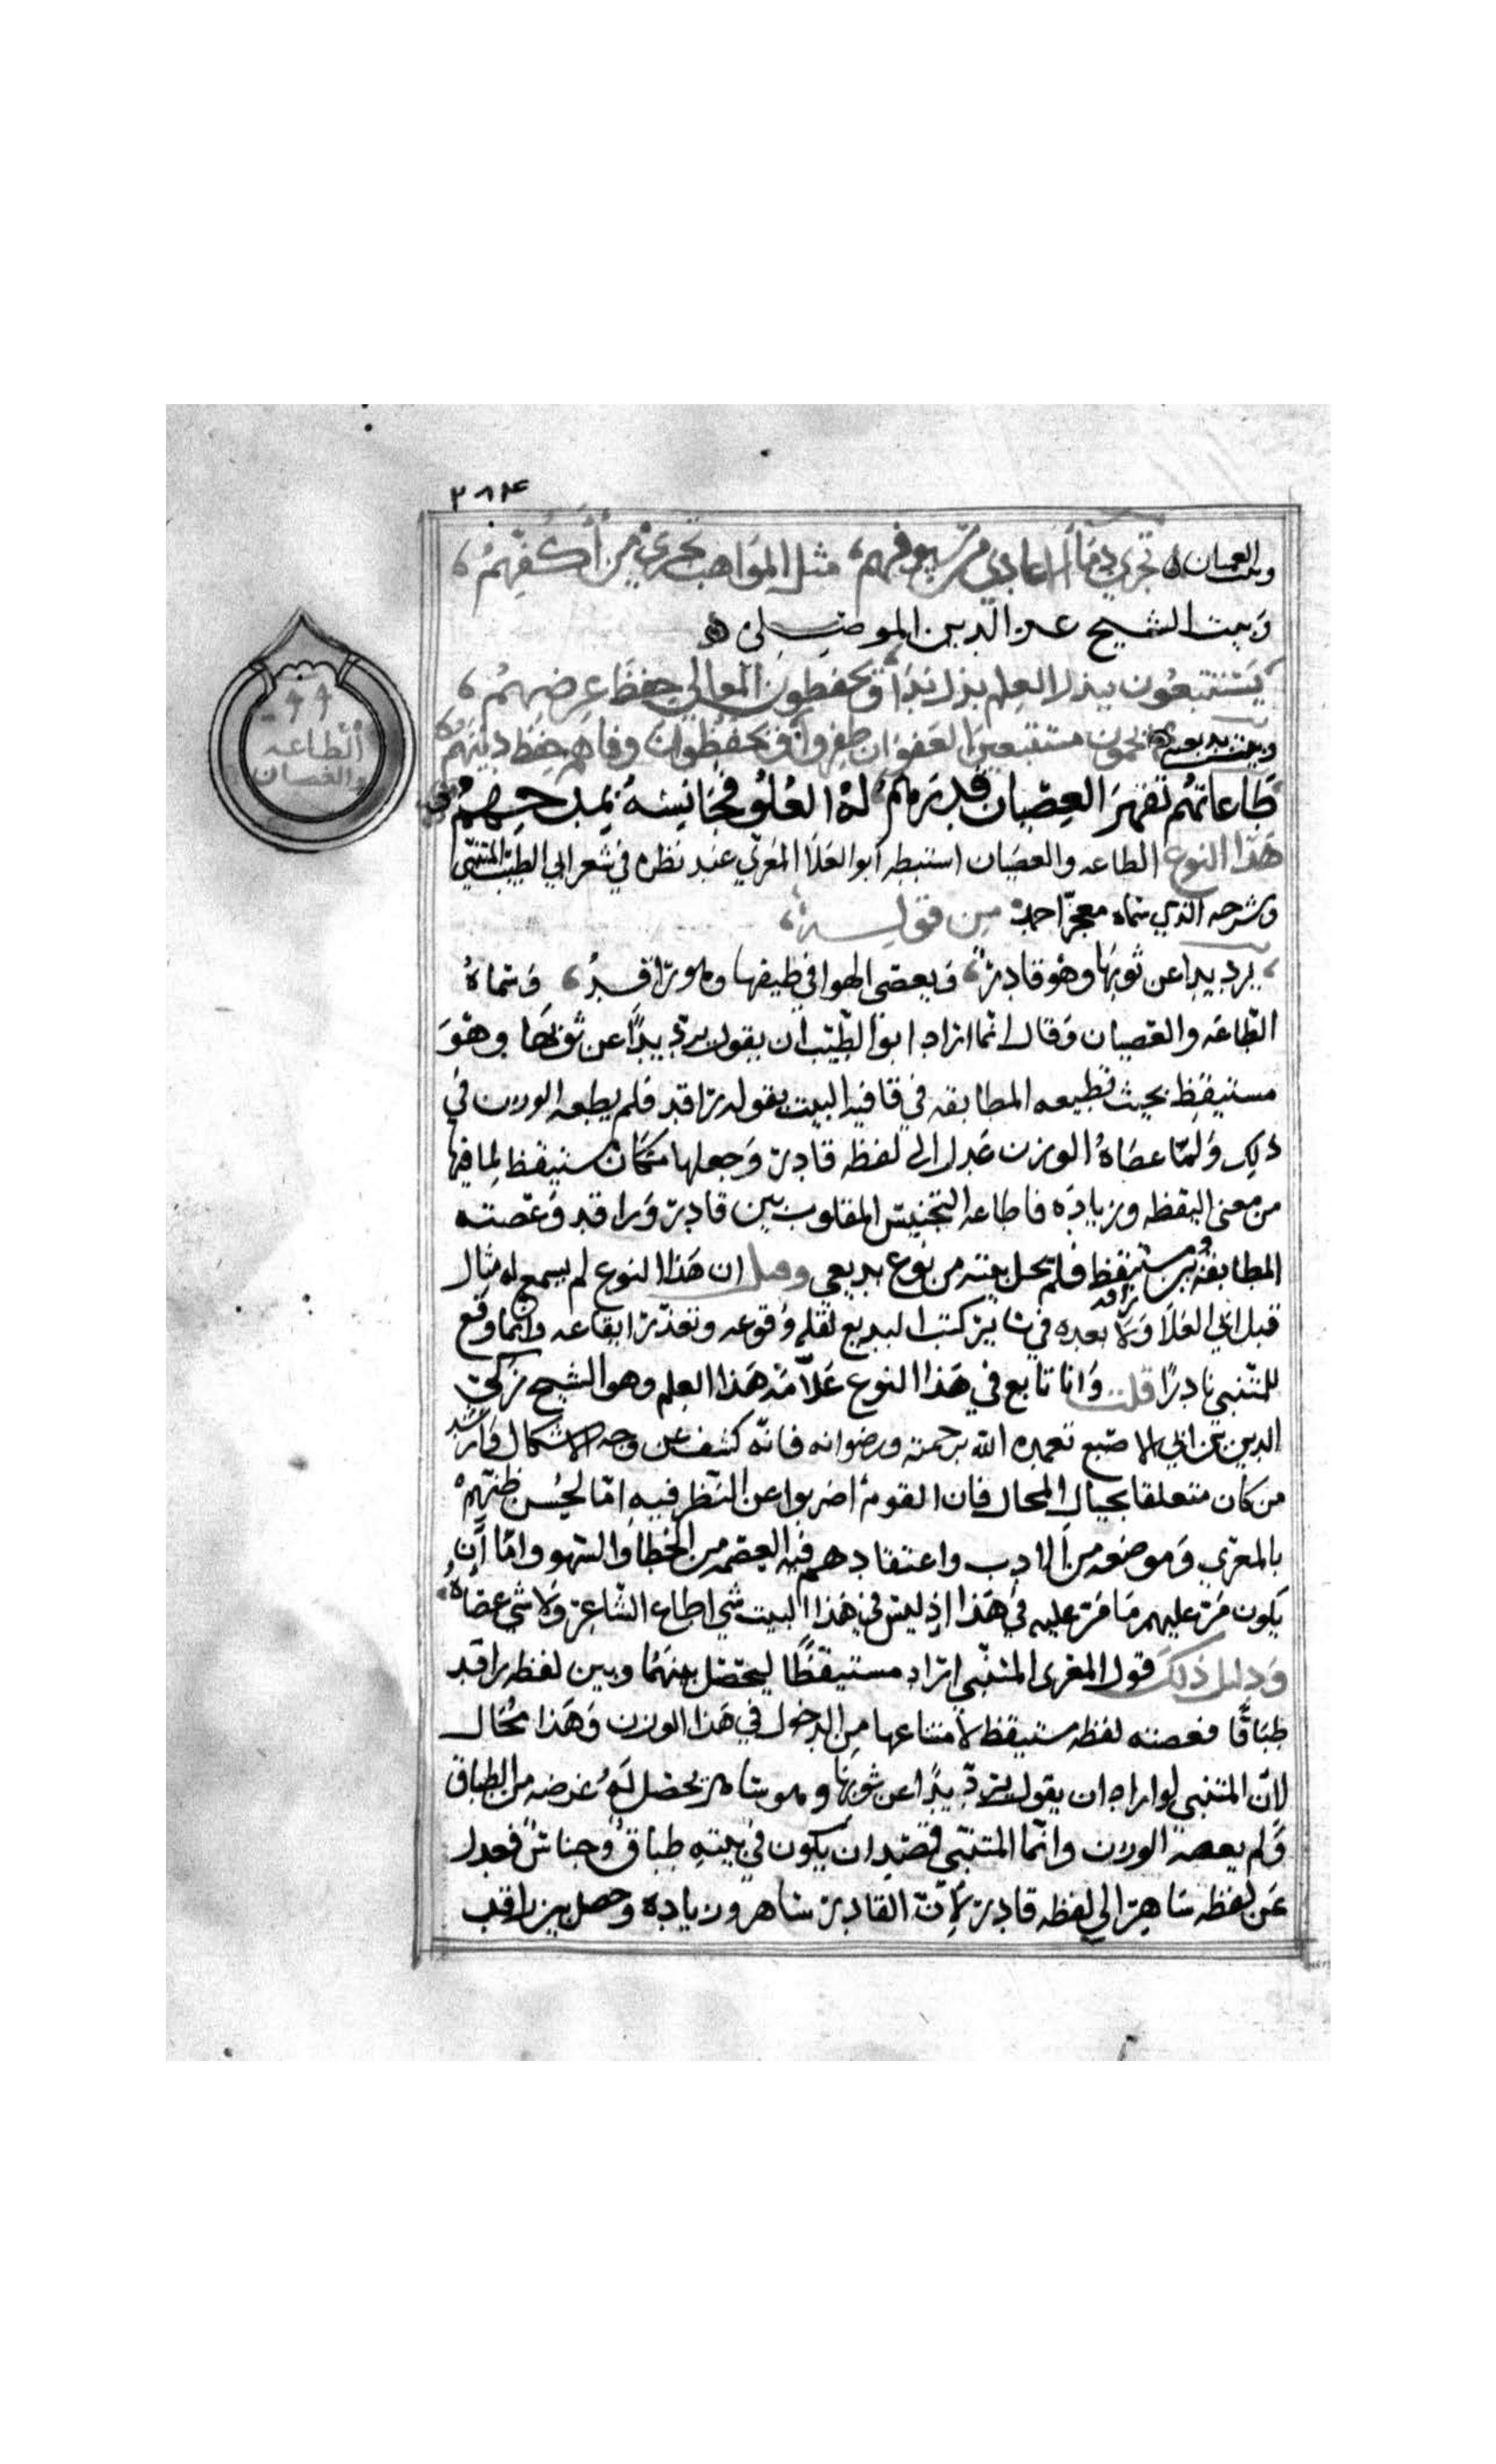 ٢٨٤
وبيت العميان تجري دماء الاعادي من سيوفهم مثل المواهب تجري من أكفهم
وَبيت الشيخ عز الدين الموصلي
يَستتبعُون ببذل العلم بذل ندًا وَيحفظون المعالي حفظَ عِرضهمُ
وبيت بديعيه يحمون مستتبعين العفو ان ظفروا وَيحفظون وفاهم حِفظ دينهم
طَاعاتهُم تقهرُ العِصْيان قدرهمُ لهُ العُلوُّ فجَانِسْهُ بمدحِهِمُ
الطاعه والعصيان
هَذا النوع الطاعه والعصيان استنبطه أبو العَلا المغري عند نظره في شعر ابي الطيّب المتنبّي
وشرحه الذي سماه معجز احمد من قوله
يرد يدا عن ثوبهَا وهو قادرٌ وَيعصى الهوا في طيفها وهو راقدُ وَسَماهُ
الطّاعَه والعَصيان وَقال انما اراد ابو الطّيّب أن يقول يردّ يدًا عن ثوبهَا وهوَ
مستيقظ بحيث تطيعه المطابقه في قافية البيت بقوله راقد فلم يطعه الوزن في
ذلِك وَلَمّا عصَاهُ الوزن عَدل الى لفظه قادر وَجعلها مكَان مستيقظ لِما فيها
من معنى اليقظه وزيادَه فاطاعه التجنيس المقلوب بين قادِر وَراقد وَعَصته
المطابقهُ بين مستيقظ وراقد فلم يخل بيته من نوع بديعي وقيل ان هَذا النوع لم يسمع له مثال
قبل ابي العَلا وَلا بعده في سَاير كتب البديع لقله وُقوعه وتعذّر ايقاعه وَانما وقع
للمتنبي نادِرًا قلت وَانا تابع في هَذا النوع عَلاّمَة هَذا العِلم وهو الشيخ زكي
الدين بن ابي الاصبع تغمده اللّه برحمته ورضوانه فانّه كشف عن وجه الاشكال وَارشد
من كان متعلقا بحبال المحال فان القوم أضربوا عن النّظر فيهِ امّا لحُسن ظنّهِمْ
بالمعري وَموضعه من الادب واعتقادهم فيه العِصمه من الخطا وَالسّهو وامّا أن
يَكون مَرّ عليهم مَا مَرّ عليه في هَذا اذ ليسَ في هَذا البيت شي اطاع الشّاعِرَ وَلا شي عصَاهُ
وَدليل ذلكَ قول المغري المتنبّي اراد مستيقظًا ليحصَل بينهُمَا وبين لفظه راقد
طِبَاقًا فعصته لفظه مستيقظ لامتناعها مِن الدخول في هَذا الوزن وَهَذا مُحَال
لانّ المتنبي لو اراد ان يقول يردّ يدًا عن ثوبهَا وهو سَاهر يحصَل لهُ غرضه من الطباق
وَلم يعصه الوزن وانّما المتنبّي قصَد ان يَكون في بيتهِ طباقٌ وَجناسٌ فعدل
عَن لفظه سَاهِر الي لفظه قادِر لأنّ القادِر سَاهر وزيادِه وحصل بين راقد